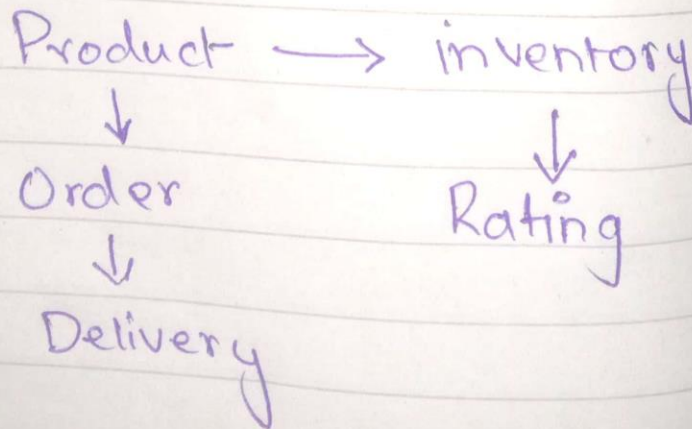 Product → inventory
↓ ↓
Order Rating
↓
Delivery